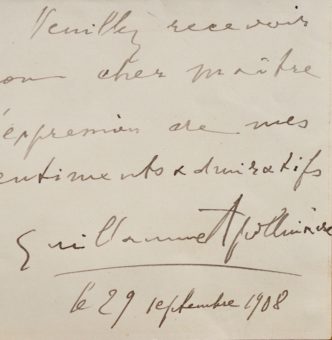 Veuillez recevoir
mon cher maître
l'expression de mes
sentiments admiratifs
Guillaume Apollinaire
le 29 septembre 1908